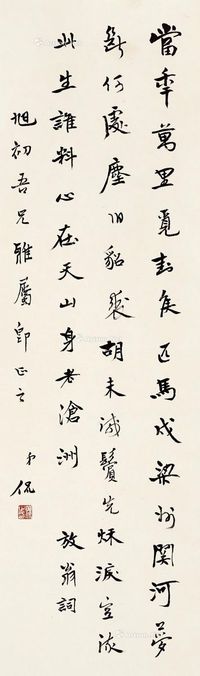 當年萬里覓封侯匹馬戍梁州關河夢
斷何處塵旧貂裘胡未滅鬢先秌淚空流
此生誰料心在天山身老滄洲 放翁詞
旭初吾兄雅屬即正之
弟侃